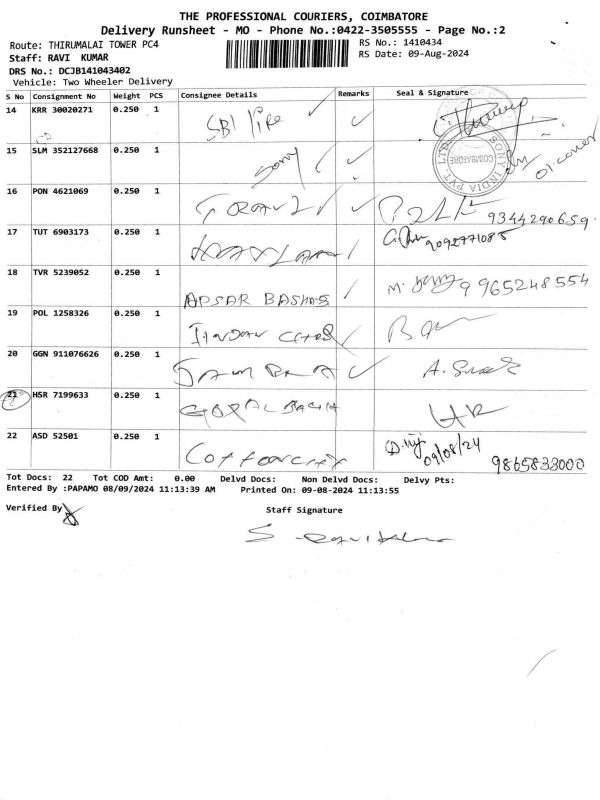 THE PROFESSIONAL COURIERS, COIMBATORE
Delivery Runsheet - MO - Phone No.:0422-3505555 - Page No.:2
Route: THIRUMALAI TOWER PC4
RS No.: 1410434
Staff: RAVI KUMAR
RS Date: 09-Aug-2024
DRS No.: DCJB141043402
Vehicle: Two Wheeler Delivery
S No Consignment No Weight PCS Consignee Details Remarks Seal & Signature
14 KRR 30020271 0.250 1 SBI life
15 SLM 352127668 0.250 1 Sony
SONY INDIA PVT. LTD. COIMBATORE
16 PON 4621069 0.250 1 9344290659
17 TUT 6903173 0.250 1 9092771085
18 TVR 5239052 0.250 1 APSAR BASHAS M. 9965248554
19 POL 1258326 0.250 1
20 GGN 911076626 0.250 1 A.
21 HSR 7199633 0.250 1 GOPAL
22 ASD 52501 0.250 1 09/08/24 9865833000
Tot Docs: 22 Tot COD Amt: 0.00 Delvd Docs: Non Delvd Docs: Delvy Pts:
Entered By :PAPAMO 08/09/2024 11:13:39 AM Printed On: 09-08-2024 11:13:55
Verified By
Staff Signature
S. Ravi Kumar